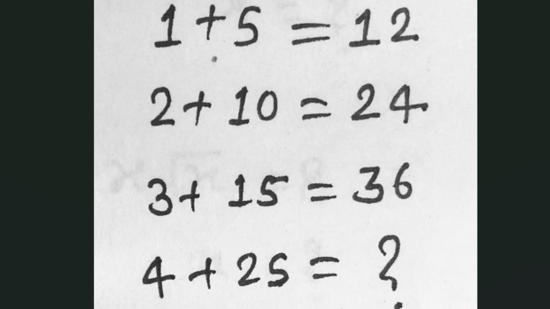 1 + 5 = 12
2 + 10 = 24
3 + 15 = 36
4 + 25 = ?